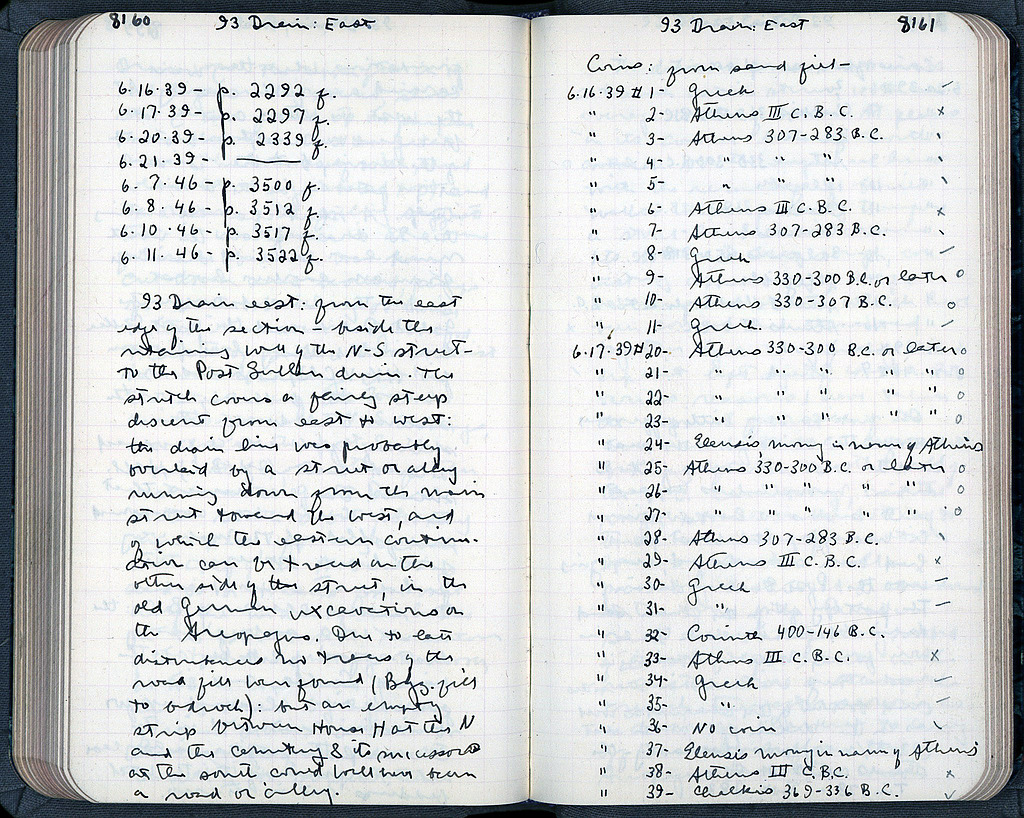 8160
93 Drain: East
6.16.39 - p. 2292 f.
6.17.39 - p. 2297 f.
6.20.39 - p. 2339 f.
6.21.39 - ———
6.7.46 - p. 3500 f.
6.8.46 - p. 3512 f.
6.10.46 - p. 3517 f.
6.11.46 - p. 3522 f.
93 Drain east: from the east
edge of the section - beside the
retaining wall of the N-S street -
to the Post Sullan drain. The
stretch covers a fairly steep
descent from east to west:
the drain line was probably
overlaid by a street or alley
running down from the main
street toward the west, and
of which the eastern continu-
ation can be traced on the
other side of the street, in the
old German excavations on
the Areopagus. Due to late
disturbances no traces of the
road fill were found (Byz. fill
to bedrock): but an empty
strip between House H at the N
and the cemetery & its successors
at the south could well have been
a road or alley.
93 Drain: East
8161
Coins: from sand fill -
6.16.39 # 1- Greek -
" 2- Athens III C.B.C. x
" 3- Athens 307-283 B.C. \
" 4- " " " \
" 5- " " " \
" 6- Athens III C.B.C. x
" 7- Athens 307-283 B.C. \
" 8- Greek -
" 9- Athens 330-300 B.C. or later o
" 10- Athens 330-307 B.C. o
" 11- Greek. -
6.17.39 # 20- Athens 330-300 B.C. or later o
" 21- " " " " o
" 22- " " " " o
" 23- " " " " o
" 24- Eleusis money in name of Athens
" 25- Athens 330-300 B.C. or later o
" 26- " " " " " o
" 27- " " " " " o
" 28- Athens 307-283 B.C. \
" 29- Athens III C.B.C. x
" 30- Greek -
" 31- " -
" 32- Corinth 400-146 B.C.
" 33- Athens III C.B.C. x
" 34- Greek -
" 35- " -
" 36- No coin \
" 37- Eleusis money in name of Athens
" 38- Athens III C.B.C. x
" 39- Chalkis 369-336 B.C. ✓